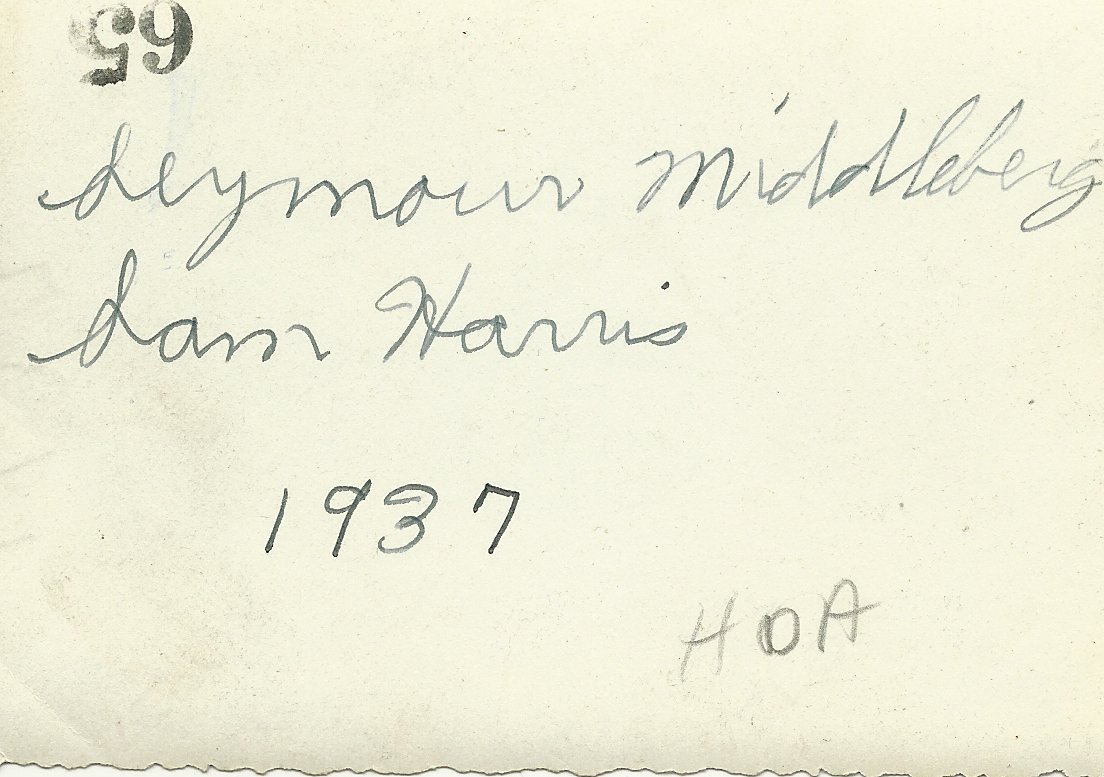 65
Seymour Middleberg
Sam Harris
1937
HOA